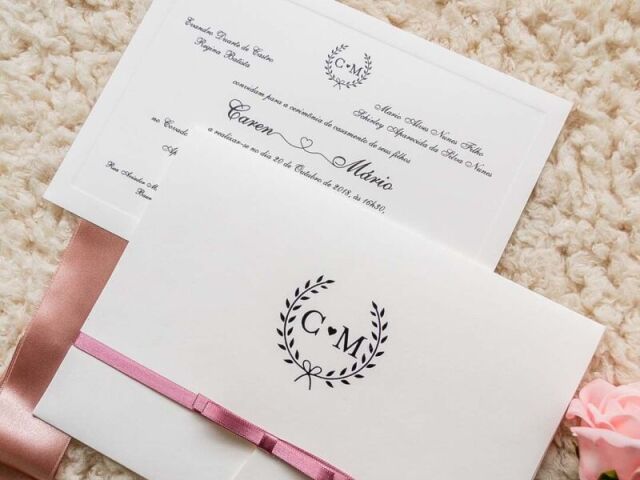 Evandro Duarte de Castro
Regina Batista
C♥M
Mario Alves Nunes Filho
Schirley Aparecida da Silva Nunes
convidam para a cerimônia de casamento de seus filhos
Caren
Mário
a realizar-se no dia 20 de Outubro de 2018, às 16h30,
no
C♥M